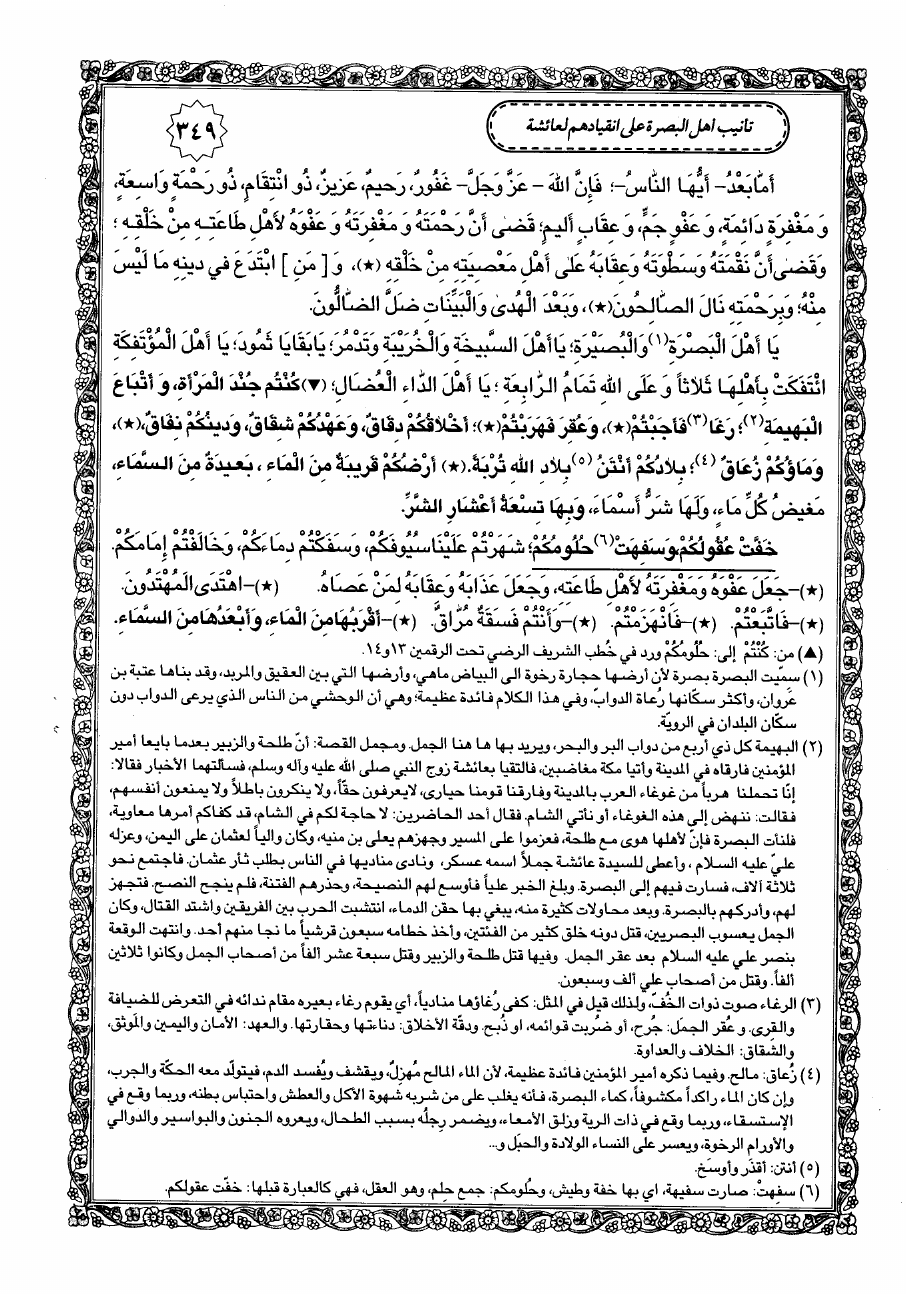 تأنيب أهل البصرة على انقيادهم لعائشة
٣٤٩
أَمَّا بَعْدُ- أَيُّهَا النَّاسُ-؛ فَإِنَّ اللهَ - عَزَّ وَجَلَّ- غَفُورٌ، رَحِيمٌ، عَزِيزٌ، ذُو انْتِقَامٍ، ذُو رَحْمَةٍ وَاسِعَةٍ،
وَ مَغْفِرَةٍ دَائِمَةٍ، وَ عَفْوٍ جَمٍّ، وَ عِقَابٍ أَلِيمٍ؛ قَضىٰ أَنَّ رَحْمَتَهُ وَ مَغْفِرَتَهُ وَ عَفْوَهُ لأَهْلِ طَاعَتِهِ مِنْ خَلْقِهِ ؛
وَقَضىٰ أَنَّ نَقْمَتَهُ وَسَطْوَتَهُ وَعِقَابَهُ عَلىٰ أَهْلِ مَعْصِيَتِهِ مِنْ خَلْقِهِ (★)، وَ[ مَنِ ] ابْتَدَعَ في دينِهِ مَا لَيْسَ
مِنْهُ؛ وَبِرَحْمَتِهِ نَالَ الصَّالِحُونَ(★)، وَبَعْدَ الْهُدىٰ وَالْبَيِّنَاتِ ضَلَّ الضَّالُّونَ.
يَا أَهْلَ الْبَصْرَةِ(١)وَالْبُصَيْرَةِ؛ يَاأَهْلَ السَّبيخَةِ وَالْخُرَيْبَةِ وَتَدْمُرَ؛ يَابَقَايَا ثَمُودَ؛ يَا أَهْلَ الْمُؤْتَفِكَةِ
ائْتَفَكَتْ بِأَهْلِهَا ثَلاَثاً وَ عَلَى اللهِ تَمَامُ الرَّابِعَةِ ؛ يَا أَهْلَ الدَّاءِ الْعُضَالِ؛ (▼)كُنْتُمْ جُنْدَ الْمَرْأَةِ، وَ أَتْبَاعَ
الْبَهيمَةِ(٢)؛ رَغَا(٣)فَأَجَبْتُمْ(★)، وَعُقِرَ فَهَرَبْتُمْ(★)؛ أَخْلاَقُكُمْ دِقَاقٌ، وَعَهْدُكُمْ شِقَاقٌ، وَدينُكُمْ نِفَاقٌ،(★)،
وَمَاؤُكُمْ زُعَاقٌ (٤)؛ بِلاَدُكُمْ أَنْتَنُ (٥)بِلاَدِ اللهِ تُرْبَةً. (★) أَرْضُكُمْ قَريبَةٌ مِنَ الْمَاءِ ، بَعيدَةٌ مِنَ السَّمَاءِ،
مَغيضُ كُلِّ مَاءٍ، وَلَهَا شَرُّ أَسْمَاءَ، وَبِهَا تِسْعَةُ أَعْشَارِ الشَّرِّ.
خَفَّتْ عُقُولُكُمْ وَسَفِهَتْ(٦)حُلُومُكُمْ؛ شَهَرْتُمْ عَلَيْنَا سُيُوفَكُمْ، وَسَفَكْتُمْ دِمَاءَكُمْ، وَخَالَفْتُمْ إِمَامَكُمْ.
(★)-جَعَلَ عَفْوَهُ وَمَغْفِرَتَهُ لأَهْلِ طَاعَتِهِ، وَجَعَلَ عَذَابَهُ وَعِقَابَهُ لِمَنْ عَصَاهُ. (★)- اهْتَدَى الْمُهْتَدُونَ.
(★)-فَاتَّبَعْتُمْ. (★)-فَانْهَزَمْتُمْ. (★)-وَأَنْتُمْ فَسَقَةٌ مُرَّاقٌ. (★)-أَقْرَبُهَا مِنَ الْمَاءِ، وَأَبْعَدُهَا مِنَ السَّمَاءِ.
(▲) من: كُنْتُمْ إلى: حُلُومُكُمْ ورد في خُطب الشريف الرضي تحت الرقمين ١٣ و١٤.
(١) سمّيت البصرة بصرة لأن أرضها حجارة رخوة الى البياض ماهي، وأرضها التي بين العقيق والمربد، وقد بناها عتبة بن
غزوان، وأكثر سكّانها رُعاة الدوابّ، وفي هذا الكلام فائدة عظيمة؛ وهي أن الوحشي من الناس الذي يرعى الدواب دون
سكّان البلدان في الرويّة.
(٢) البهيمة كل ذي أربع من دواب البر والبحر، ويريد بها ها هنا الجمل. ومجمل القصة: أنّ طلحة والزبير بعدما بايعا أمير
المؤمنين فارقاه في المدينة وأتيا مكة مغاضبين، فالتقيا بعائشة زوج النبي صلى الله عليه وآله وسلم، فسألتهما الأخبار فقالا:
إنّا تحملنا هرباً من غوغاء العرب بالمدينة وفارقنا قومنا حيارى، لايعرفون حقّاً، ولا ينكرون باطلاً ولا يمنعون أنفسهم،
فقالت: ننهض إلى هذه الغوغاء أو نأتي الشام. فقال أحد الحاضرين: لا حاجة لكم في الشام، قد كفاكم أمرها معاوية،
فلنأت البصرة فإنّ لأهلها هوى مع طلحة، فعزموا على المسير وجهزهم يعلى بن منيه، وكان والياً لعثمان على اليمن، وعزله
عليّ عليه السلام ، وأعطى للسيدة عائشة جملاً اسمه عسكر، ونادى مناديها في الناس بطلب ثأر عثمان. فاجتمع نحو
ثلاثة آلاف، فسارت فيهم إلى البصرة. وبلغ الخبر علياً فأوسع لهم النصيحة، وحذرهم الفتنة، فلم ينجح النصح. فتجهز
لهم، وأدركهم بالبصرة. وبعد محاولات كثيرة منه، يبغي بها حقن الدماء، انتشبت الحرب بين الفريقين واشتد القتال، وكان
الجمل يعسوب البصريين، قتل دونه خلق كثير من الفئتين، وأخذ خطامه سبعون قرشياً ما نجا منهم أحد. وانتهت الوقعة
بنصر علي عليه السلام بعد عقر الجمل. وفيها قتل طلحة والزبير وقتل سبعة عشر ألفاً من أصحاب الجمل وكانوا ثلاثين
ألفاً. وقتل من أصحاب علي ألف وسبعون.
(٣) الرغاء صوت ذوات الخُفّ، ولذلك قيل في المثل: كفى رُغاؤها منادياً، أي يقوم رغاء بعيره مقام ندائه في التعرض للضيافة
والقِرى. و عُقر الجمَل: جُرح، أو ضُربت قوائمه، او ذُبح. ودقّة الأخلاق: دناءتها وحقارتها. والعهد: الأمان واليمين والموثق،
والشقاق: الخلاف والعداوة.
(٤) زُعاق: مالح. وفيما ذكره أمير المؤمنين فائدة عظيمة، لأن الماء المالح مُهزِلٌ، ويقشف ويُفسد الدم، فيتولّد معه الحكّة والجرب،
وإن كان الماء راكداً مكشوفاً، كماء البصرة، فأنه يغلب على من شربه شهوة الأكل والعطش واحتباس بطنه، وربما وقع في
الإستسقاء، وربما وقع في ذات الرية وزلق الأمعاء، ويضمر رجلُه بسبب الطحال، ويعروه الجنون والبواسير والدوالي
والأورام الرخوة، ويعسر على النساء الولادة والحبَل و...
(٥) أنتن: أقذر وأوسَخ.
(٦) سفِهتْ: صارت سفيهة، اي بها خفة وطيش، وحُلومكم: جمع حِلم، وهو العقل، فهي كالعبارة قبلها: خفّت عقولكم.